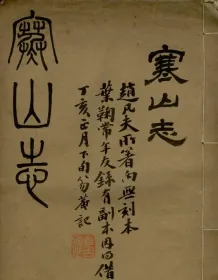 寒山志
趙凡夫所著向無刻本
葉鞠裳年友錄有副本因借
丁亥正月下旬笏盦記
寒山志